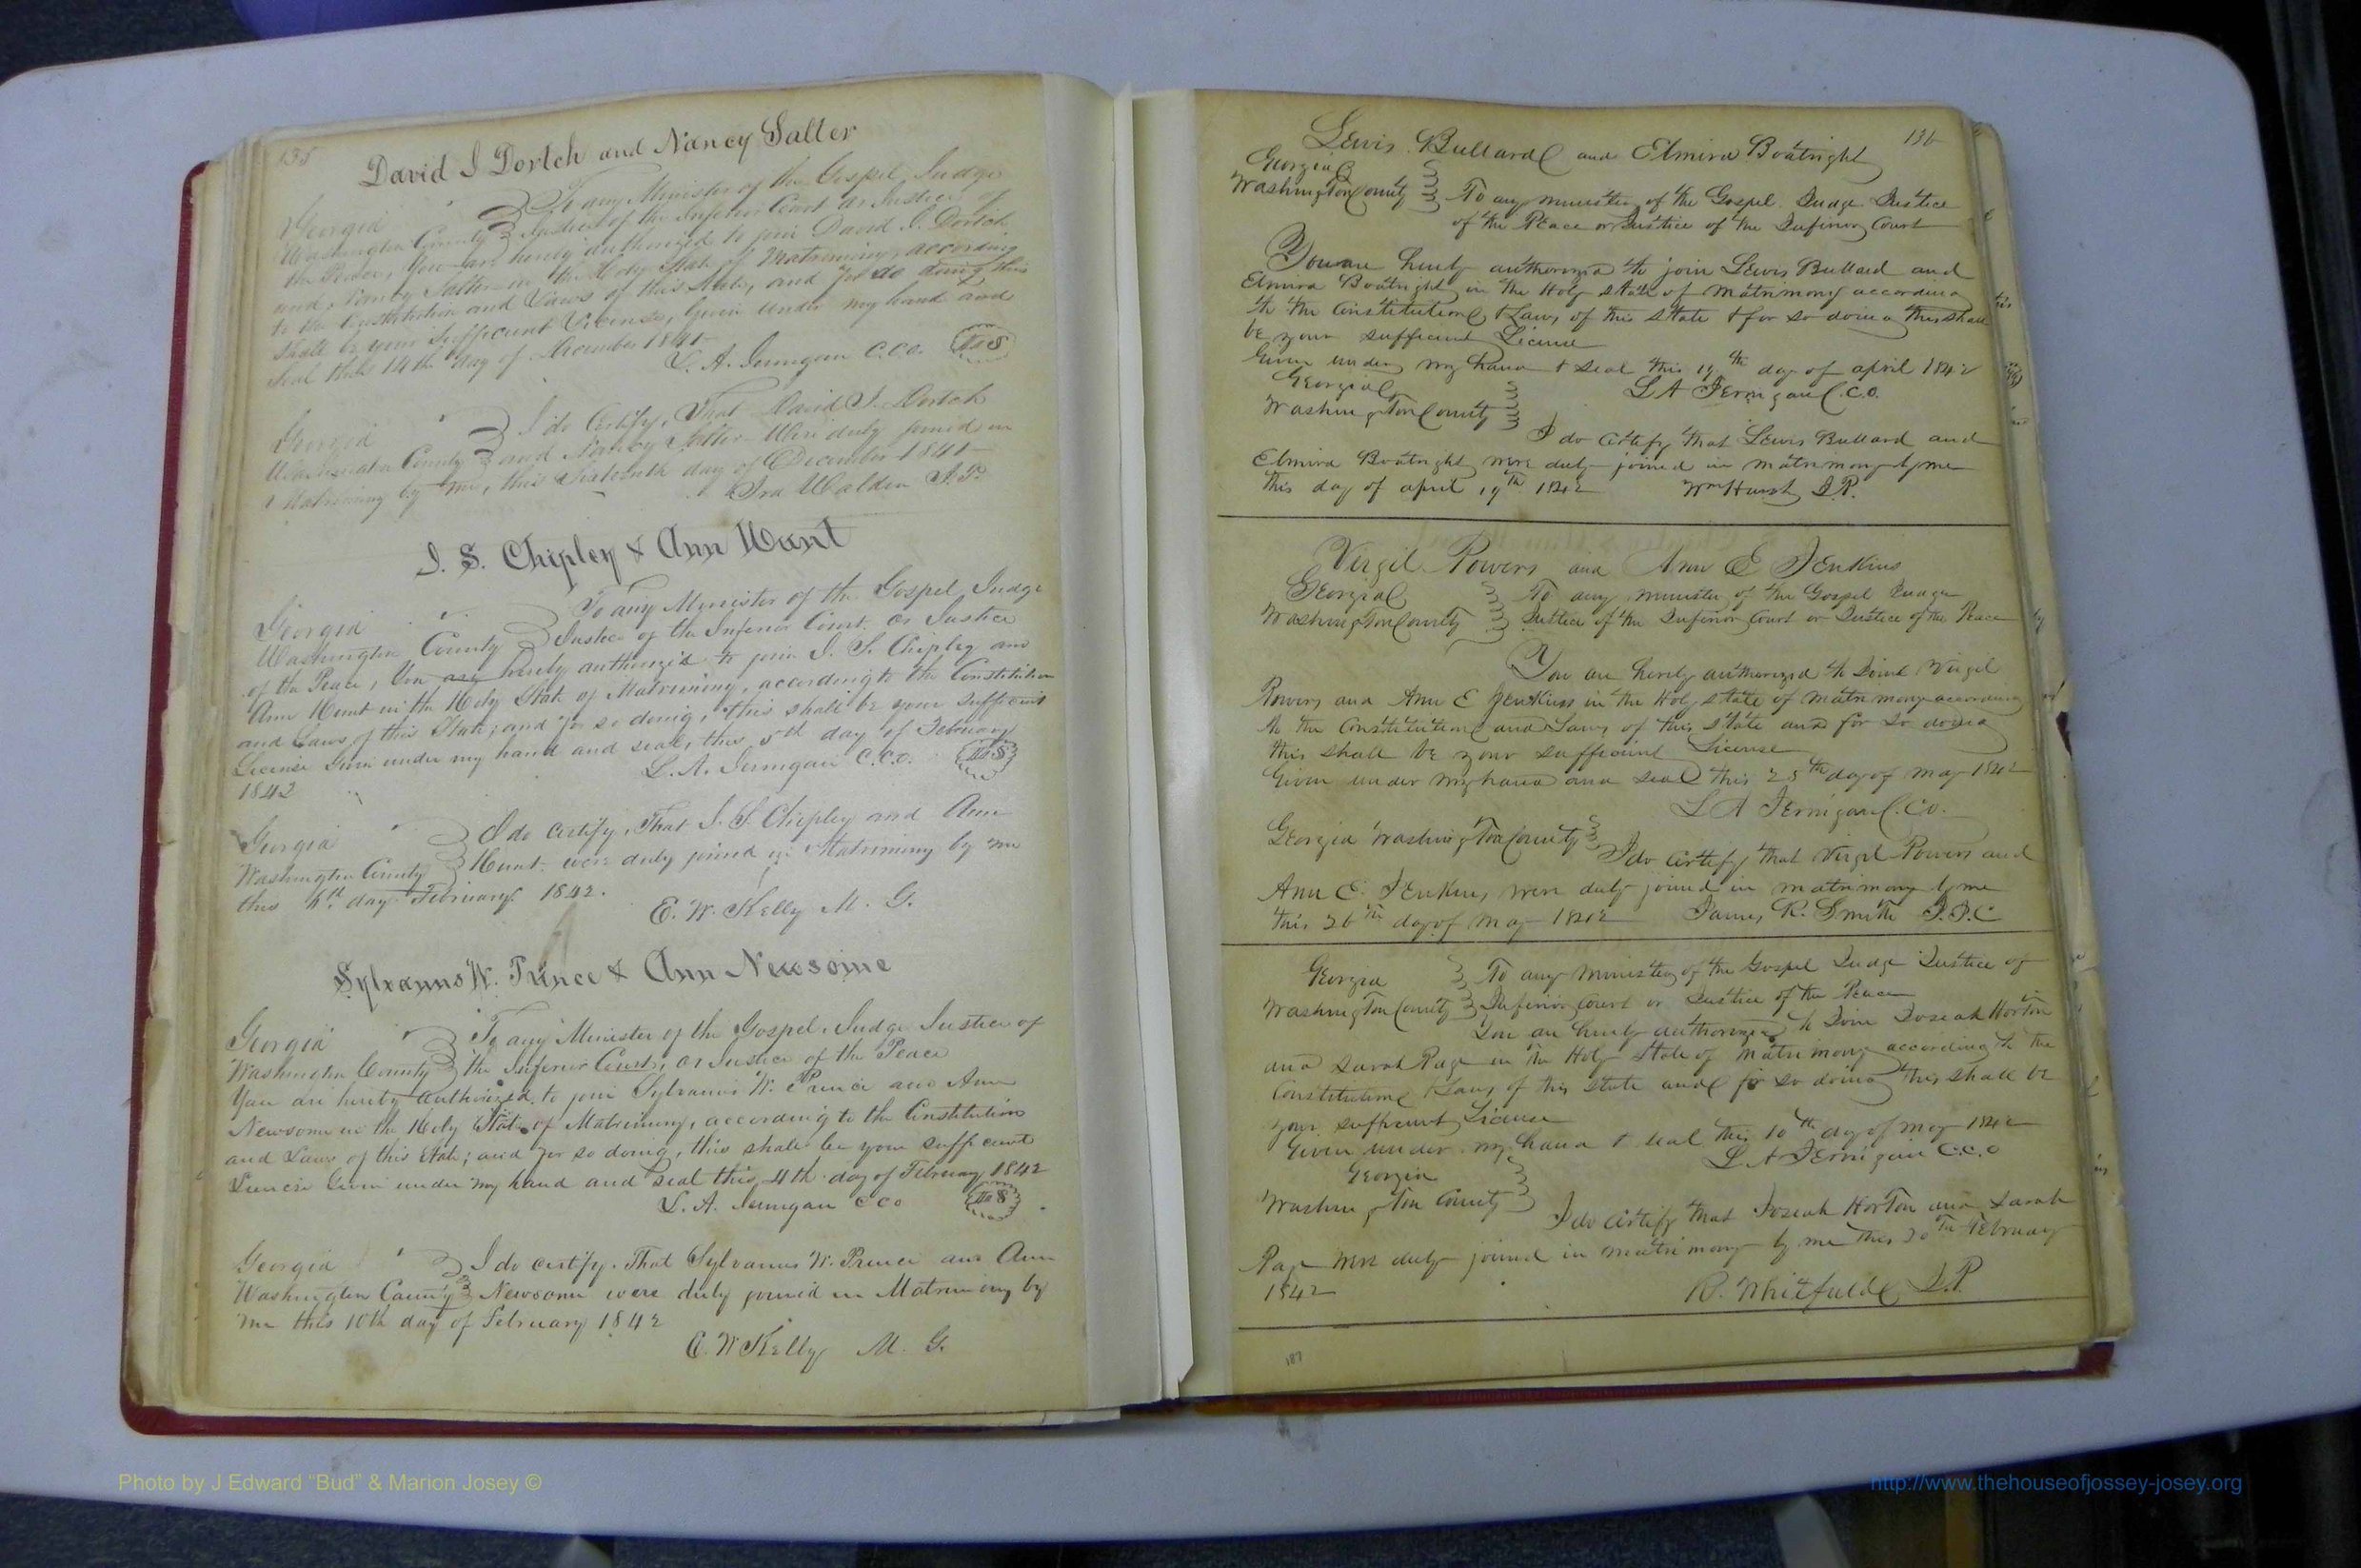 135
David I Dortch and Nancy Salter
Georgia To any Minister of the Gospel, Judge
Washington County Justice of the Inferior Court or Justice of
the Peace, You are hereby authorized to join David I. Dortch
and Nancy Salter in the Holy State of Matrimony, according
to the Constitution and Laws of this State, and for so doing this
shall be your sufficient License, Given under my hand and
Seal this 14th day of December 1841
L. A. Jernigan C.C.O.
Georgia I do Certify, That David I. Dortch
Washington County and Nancy Salter Were duly joined in
Matrimony by me, this Sixteenth day of December 1841
Ira Walden J.P.
I. S. Chipley & Ann Hunt
Georgia To any Minister of the Gospel, Judge
Washington County Justice of the Inferior Court, or Justice
of the Peace, You are hereby authoriz'd to join I. S. Chipley and
Ann Hunt in the Holy State of Matrimony, according to the Constitution
and Laws of this State; and for so doing, this shall be your sufficient
License Given under my hand and seal, this 5th day of February
1842 L. A. Jernigan C.C.O.
Georgia I do certify, That I. S. Chipley and Ann
Washington County Hunt were duly joined in Matrimony by me
this 6th day February 1842.
E. W. Kelly M. G.
Sylvanus W. Prince & Ann Newsome
Georgia To any Minister of the Gospel, Judge Justice of
Washington County the Inferior Court, or Justice of the Peace
You are hereby authorized, to join Sylvanus W. Prince and Ann
Newsome in the Holy State of Matrimony, according to the Constitution
and Laws of this State; and for so doing, this shall be your sufficient
License Given under my hand and seal this 4th day of February 1842
L. A. Jernigan CCO
Georgia I do certify. That Sylvanus W. Prince and Ann
Washington County Newsome were duly joined in Matrimony by
me this 10th day of February 1842
E. W Kelly M. G.
136
Lewis Bullard and Elmira Boatright
Georgia
Washington County To any minister of the Gospel Judge Justice
of the Peace or Justice of the Inferior Court
You are hereby authorized to join Lewis Bullard and
Elmira Boatright in the Holy state of matrimony according
to the Constitution & Laws of this State & for so doing this shall
be your sufficient License
Given under my hand & seal this 19th day of april 1842
Georgia L A Jernigan C.C.O.
Washington County
I do certify that Lewis Bullard and
Elmira Boatright were duly joined in matrimony by me
this day of april 19th 1842 Wm Hurst J.P.
Virgil Powers and Ann E Jenkins
Georgia To any minister of the Gospel Judge
Washington County Justice of the Inferior Court or Justice of the Peace
You are hereby authorized to Join Virgil
Powers and Ann E Jenkins in the Holy state of matrimony according
to the Constitution and Laws of this State and for so doing
this shall be your sufficient License
Given under my hand and seal this 25th day of may 1842
L A Jernigan C.C.O.
Georgia Washington County I do certify that Virgil Powers and
Ann E. Jenkins were duly joined in matrimony by me
this 26th day of may 1842 James R. Smith J.I.C
Georgia To any minister of the Gospel Judge Justice of
Washington County Inferior Court or Justice of the Peace
You are hereby authorized to Join Joseah Horton
and Sarah Page in the Holy State of matrimony according to the
Constitution & Laws of this State and for so doing this shall be
your sufficient License
Given under my hand & seal this 10th day of may 1842
Georgia L A Jernigan C.C.O
Washington County
I do certify that Joseah Horton and Sarah
Page were duly joined in matrimony by me this 20th February
1842 R. Whitfield J.P.
187
Photo by J Edward “Bud” & Marion Josey ©
http://www.thehouseofjossey-josey.org